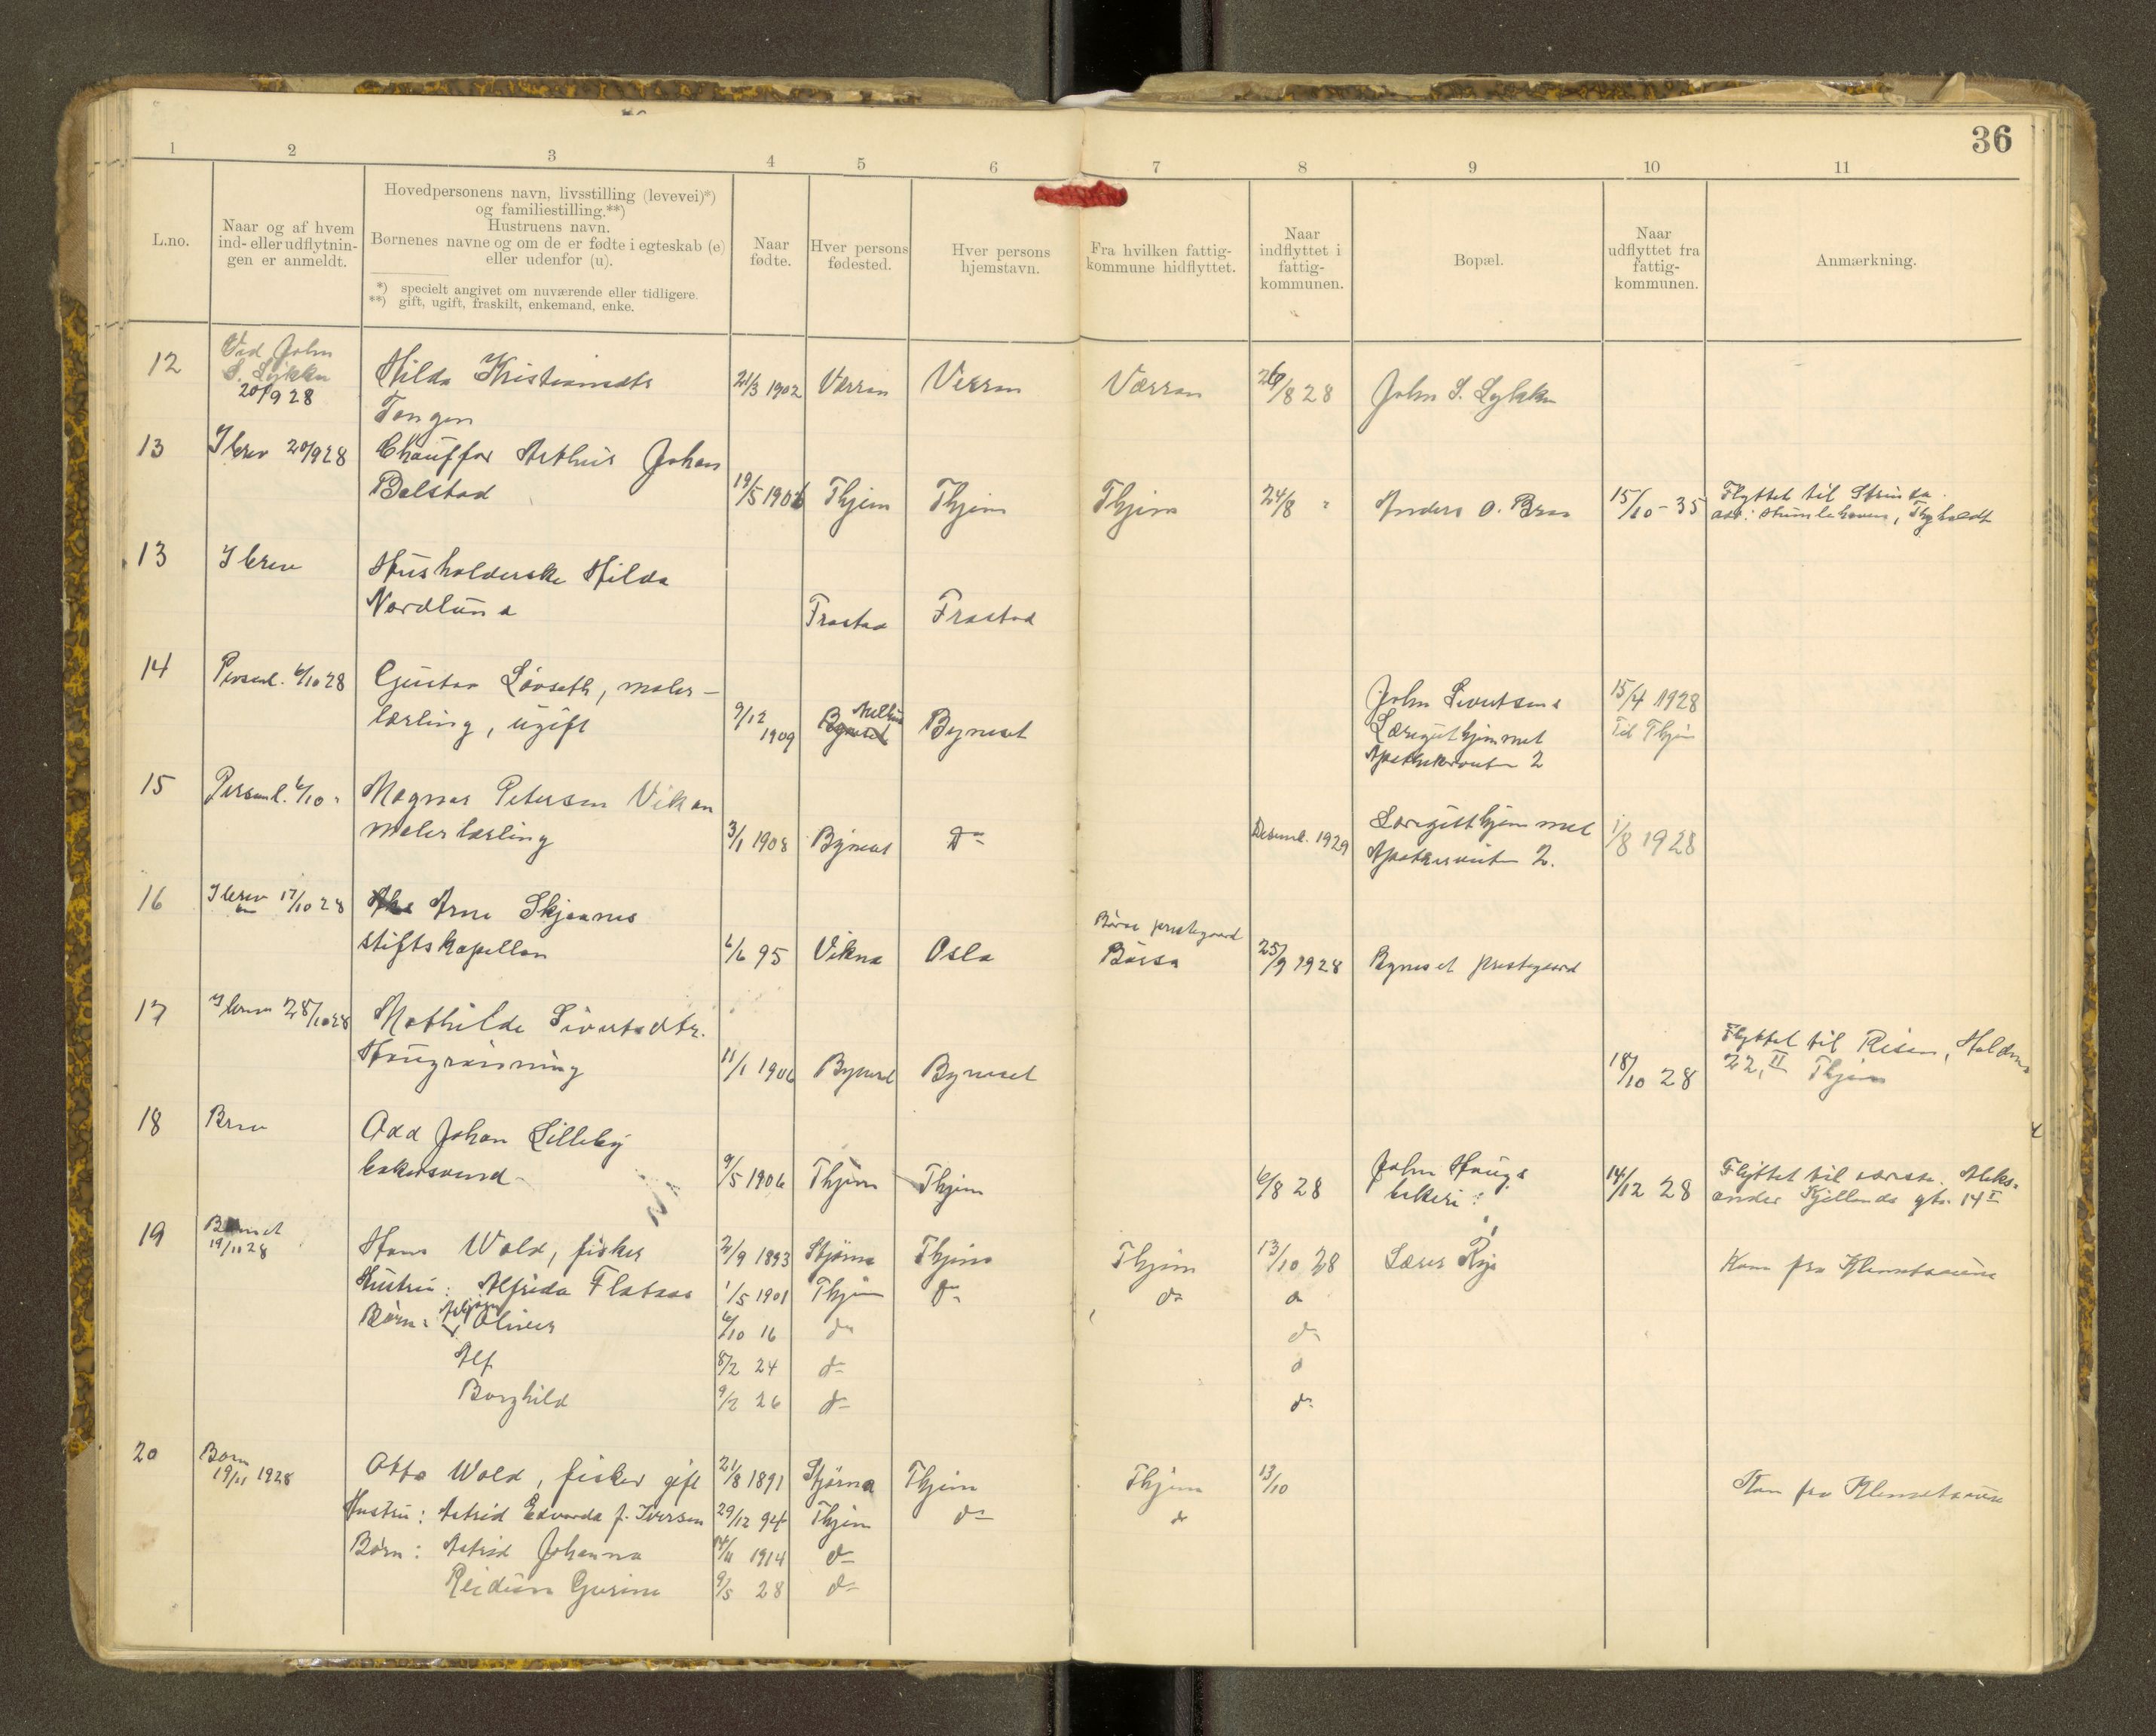 36
1 2 3 4 5 6 7 8 9 10 11
L.no.
Naar og af hvem
ind- eller udflytnin-
gen er anmeldt.
Hovedpersonens navn, livsstilling (levevei)*)
og familiestilling.**)
Hustruens navn.
Børnenes navne og om de er fødte i egteskab (e)
eller udenfor (u).
*) specielt angivet om nuværende eller tidligere.
**) gift, ugift, fraskilt, enkemand, enke.
Naar
fødte.
Hver persons
fødested.
Hver persons
hjemstavn.
Fra hvilken fattig-
kommune hidflyttet.
Naar
indflyttet i
fattig-
kommunen.
Bopæl.
Naar
udflyttet fra
fattig-
kommunen.
Anmærkning.
12
Ved John
S. Lykken
20/9 28
Hilda Kristiansdtr
Tangen
21/3 1902 Værran Verran Værran 26/8 28 John S. Lykken
13 I brev 20/9 28 Chauffør Arthur Johan
Belstad
19/5 1906 Thjem Thjem Thjem 24/8 " Anders O. Braa 15/10-35 Flyttet til Strinda
adr: , Tyholdt
13 I brev Husholderske Hilda
Nordlund
Frostad Frostad
14 Personl. 6/10 28 Gustav Løvseth, maler-
lærling, ugift
9/12 1909 Byneset Melhus Byneset
John Sivertsens
Læreguthjemmet
Apothekerveiten 2
15/4 1928
Til Thjem
15 Personl. 6/10 " Magnar Petersen Vikan
malerlærling
3/1 1908 Byneset do Desemb. 1929
Læreguthjemmet
Apotekerveiten 2.
1/8 1928
16 I brev 17/10 28 Arne Skjaanes
stiftskapellan
6/6 95 Vikna Oslo
Børsa prestegaard
Børsa 25/9 1928 Byneset prestegaard
17 I brev 28/10 28 Mathilde Sivertsdtr.
Haugrønning
11/1 1906 Byneset Byneset 18/10 28
Flyttet til Risan,
22, II Thjem
18 Brev Odd Johan Lilleby
bakersvend
9/5 1906 Thjem Thjem 6/8 28
John Haugs
bakeri
14/12 28
Flyttet til adresse. Aleks-
ander Kjellands gt. 14 I
19
19/11 28
Hans Wold, fisker 2/9 1893 Stjørna Thjem Thjem 13/10 28 Rye Kom fra Klemetsaune
Hustru: Alfrida Flataas 1/5 1901 Thjem do do do
Børn: Oliver 6/10 16 do do
Alf 8/2 24 do do
Borghild 9/2 26 do do
20
19/11 1928
Otto Wold, fisker gift 21/8 1891 Stjørna Thjem Thjem 13/10 Kom fra Klemetsaune
Hustru: Astrid Edvarda f. Iversen 29/12 94 Thjem do do
Børn: Astrid Johanna 14/11 1914 do
Reidun Gurine 9/5 28 do